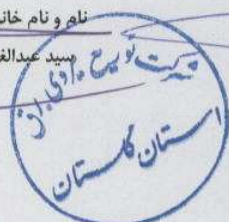 نام و نام خان
سید عبدالغ
شرکت توزیع نیروی برق
استان گلستان